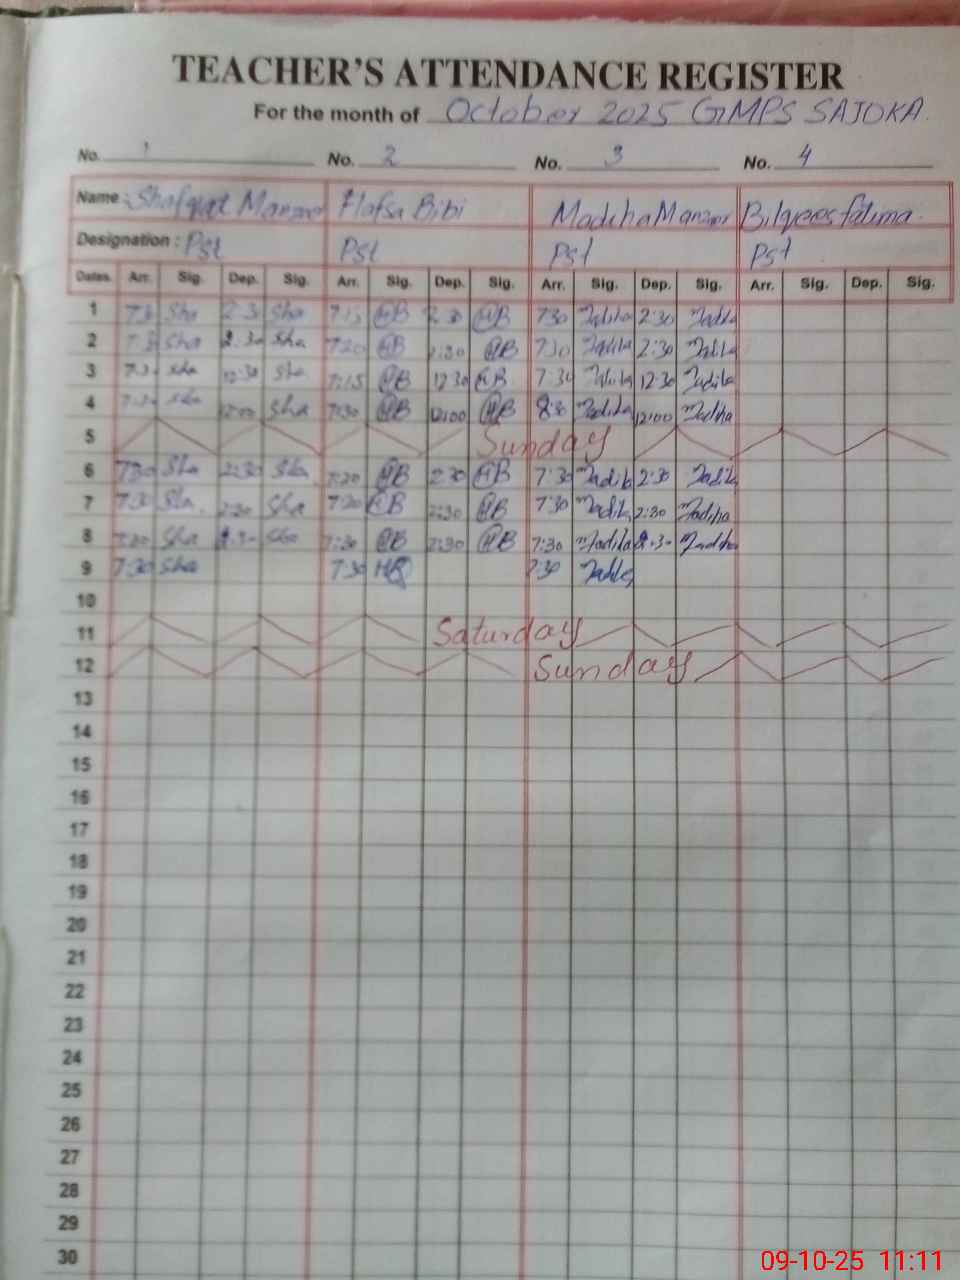 TEACHER'S ATTENDANCE REGISTER
For the month of October 2025 GMPS SAJOKA.
No. 1 No. 2 No. 3 No. 4
Name : Shafqat Manzoor Hafsa Bibi Madiha Manzoor Bilqees fatima.
Designation : Pst Pst Pst Pst
Dates. Arr. Sig. Dep. Sig. Arr. Sig. Dep. Sig. Arr. Sig. Dep. Sig. Arr. Sig. Dep. Sig.
1 7.3 Sha 2.3 Sha 7:15 HB 2:30 HB 730 Madiha 2:30 Madiha
2 7.3 Sha 2.30 Sha 7:20 HB 2:30 HB 730 Madiha 2:30 Madiha
3 Sha 12:30 Sha 7:15 HB 12:30 HB 7:30 Madiha 12:30 Madiha
4 Sha 12:00 Sha 7:30 HB 12:00 HB 8:30 Madiha 12:00 Madiha
5 Sunday
6 7:30 Sha 2:30 Sha 7:20 HB 2:30 HB 7:30 Madiha 2:30 Madiha
7 7:30 Sha 2:30 Sha 7:20 HB 2:30 HB 7:30 Madiha 2:30 Madiha
8 7:30 Sha 2.30 Sha 7:30 HB 2:30 HB 7:30 Madiha 2.30 Madiha
9 7:30 Sha 7:30 HB 7:30 Madiha
10
11 Saturday
12 Sunday
13
14
15
16
17
18
19
20
21
22
23
24
25
26
27
28
29
30
09-10-25 11:11